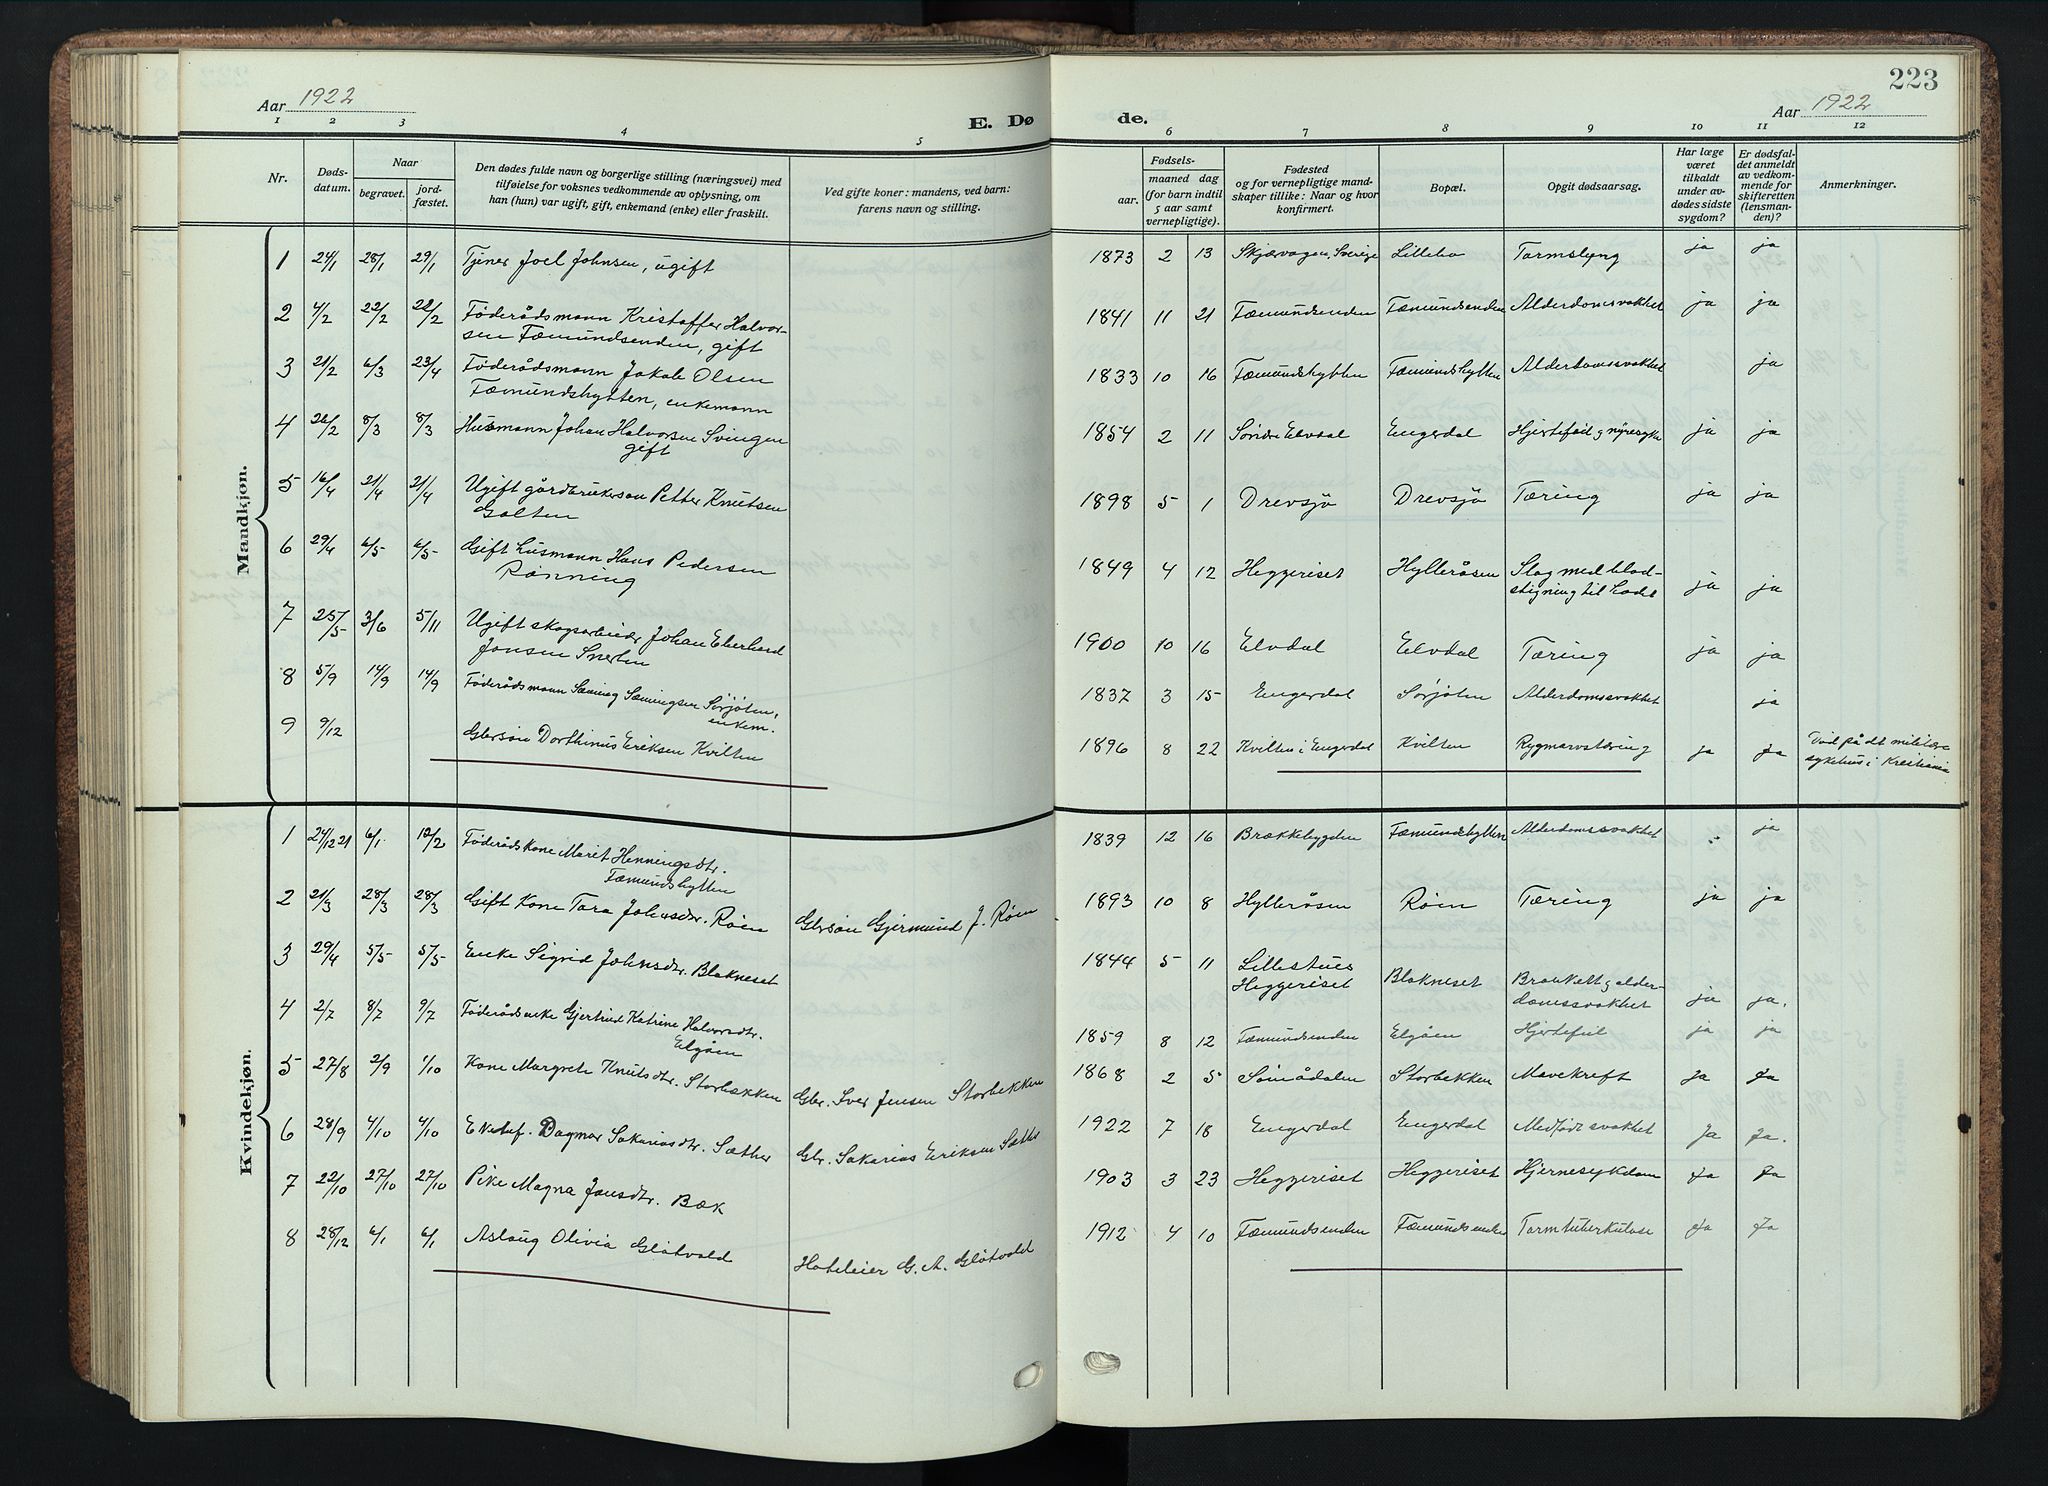 223
Aar 1922
E. Døde.
Aar 1922
1 2 3 4 5 6 7 8 9 10 11 12
Nr.
Døds-
datum.
Naar
begravet.
jord-
fæstet.
Den dødes fulde navn og borgerlige stilling (næringsvei) med
tilføielse for voksnes vedkommende av oplysning, om
han (hun) var ugift, gift, enkemand (enke) eller fraskilt.
Ved gifte koner: mandens, ved barn:
farens navn og stilling.
Fødsels-
aar.
maaned dag
(for barn indtil
5 aar samt
vernepligtige).
Fødested
og for vernepligtige mand-
skaper tillike: Naar og hvor
konfirmert.
Bopæl.
Opgit dødsaarsag.
Har læge
været
tilkaldt
under av-
dødes sidste
sygdom?
Er dødsfal-
det anmeldt
av vedkom-
mende for
skifteretten
(lensman-
den)?
Anmerkninger.
Mandkjøn.
1 24/1 28/1 29/1 Tjener Joel Johnsen, ugift 1873 2 13 Skjærvagen, Sverige Lillebo Tarmslyng ja ja
2 4/2 22/2 22/2 Føderådsmann Kristaffer Halvor-
sen Fæmundsenden, gift 1841 11 21 Fæmundsenden Fæmundsenden Alderdomssvakhet ja ja
3 21/2 6/3 23/4 Føderådsmann Jakob Olsen
Fæmundshytten, enkemann 1833 10 16 Fæmundshytten Fæmundshytten Alderdomssvakhet ja
4 26/2 8/3 8/3 Husmann Johan Halvorsen Svingen
gift 1854 2 11 Søndre Elvdal Engerdal Hjertefeil og nyresyke ja ja
5 16/4 21/4 21/4 Ugift gårdbrukerson Petter Knutsen
Galten 1898 5 1 Drevsjø Drevsjø Tæring ja ja
6 29/4 6/5 6/5 Gift husmann Hans Pedersen
Rønning 1849 4 12 Heggeriset Hylleråsen Slag med blod-
stigning til hodet ja ja
7 25/5 3/6 5/11 Ugift skogsarbeider Johan Eberhard
Jonsen Snerten 1900 10 16 Elvdal Elvdal Tæring ja ja
8 5/9 14/9 14/9 Føderådsmann Sæming Sæmingsen Sørjøten,
enkem. 1837 3 15 Engerdal Sørjøten Alderdomssvakhet ja
9 9/12 Gbrsøn Dorthinus Eriksen Kvilten 1896 8 22 Kvilten i Engerdal Kvilten Rygmarvstæring ja Ja Død på dt militære
sykehus i Kristiania
Kvindekjøn.
1 24/12 21 6/1 12/2 Føderådskone Marit Henningsdtr.
Fæmundshytten 1839 12 16 Brækkebygden Fæmundshytten Alderdomssvakhet ja
2 21/3 28/3 28/3 Gift Kone Tara Johnsdtr. Røen Gbrsøn Gjermund J. Røen 1893 10 8 Hylleråsen Røen Tæring ja ja
3 29/4 5/5 5/5 Enke Sigrid Johnsdtr. Blakneset 1844 5 11 Lillestues
Heggeriset Blakneset Bronkett og alder-
domssvakhet ja ja.
4 2/7 8/7 9/7 Føderådsenke Gjertrud Katrine Halvorsdtr.
Elgåen 1859 8 12 Fæmundsenden Elgåen Hjertefeil ja ja
5 27/8 2/9 1/10 Kone Margrete Knutsdtr. Storbækken Gbr. Iver Jensen Storbekken 1868 2 5 Sømådalen Storbekken Mavekreft Ja Ja
6 28/9 4/10 4/10 Ektef. Dagmar Sakariasdtr. Sæther Gbr. Sakarias Eriksen Sætter 1922 7 18 Engerdal Engerdal Medfødt svakhet Ja Ja.
7 22/10 27/10 27/10 Pike Magna Jonsdtr. Bæk 1903 3 23 Heggeriset Heggeriset Hjernesykdom Ja Ja
8 28/12 6/1 6/1 Aslaug Olivia Gløtvold Hoteleier G. A. Gløtvold 1912 4 10 Fæmundsenden Fæmundsenden Tarmtuberkulose Ja Ja